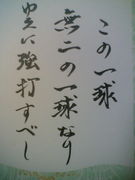 この一球
無二の一球なり
に強打すべし